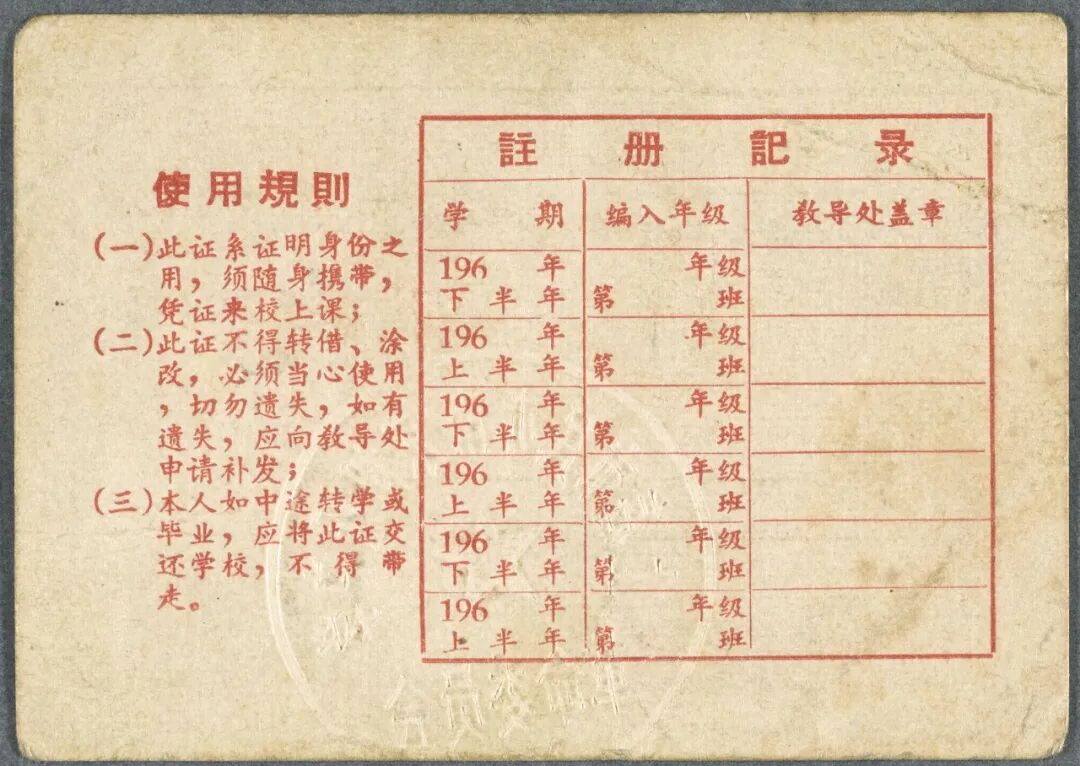 使用規則
(一)此证系证明身份之
用，须随身携带，
凭证来校上课；
(二)此证不得转借、涂
改，必须当心使用
，切勿遗失，如有
遗失，应向教导处
申请补发；
(三)本人如中途转学或
毕业，应将此证交
还学校，不得带
走。
註册記录
学期 编入年级 教导处盖章
196 年 年级
下半年 第 班
196 年 年级
上半年 第 班
196 年 年级
下半年 第 班
196 年 年级
上半年 第 班
196 年 年级
下半年 第 班
196 年 年级
上半年 第 班
委员会